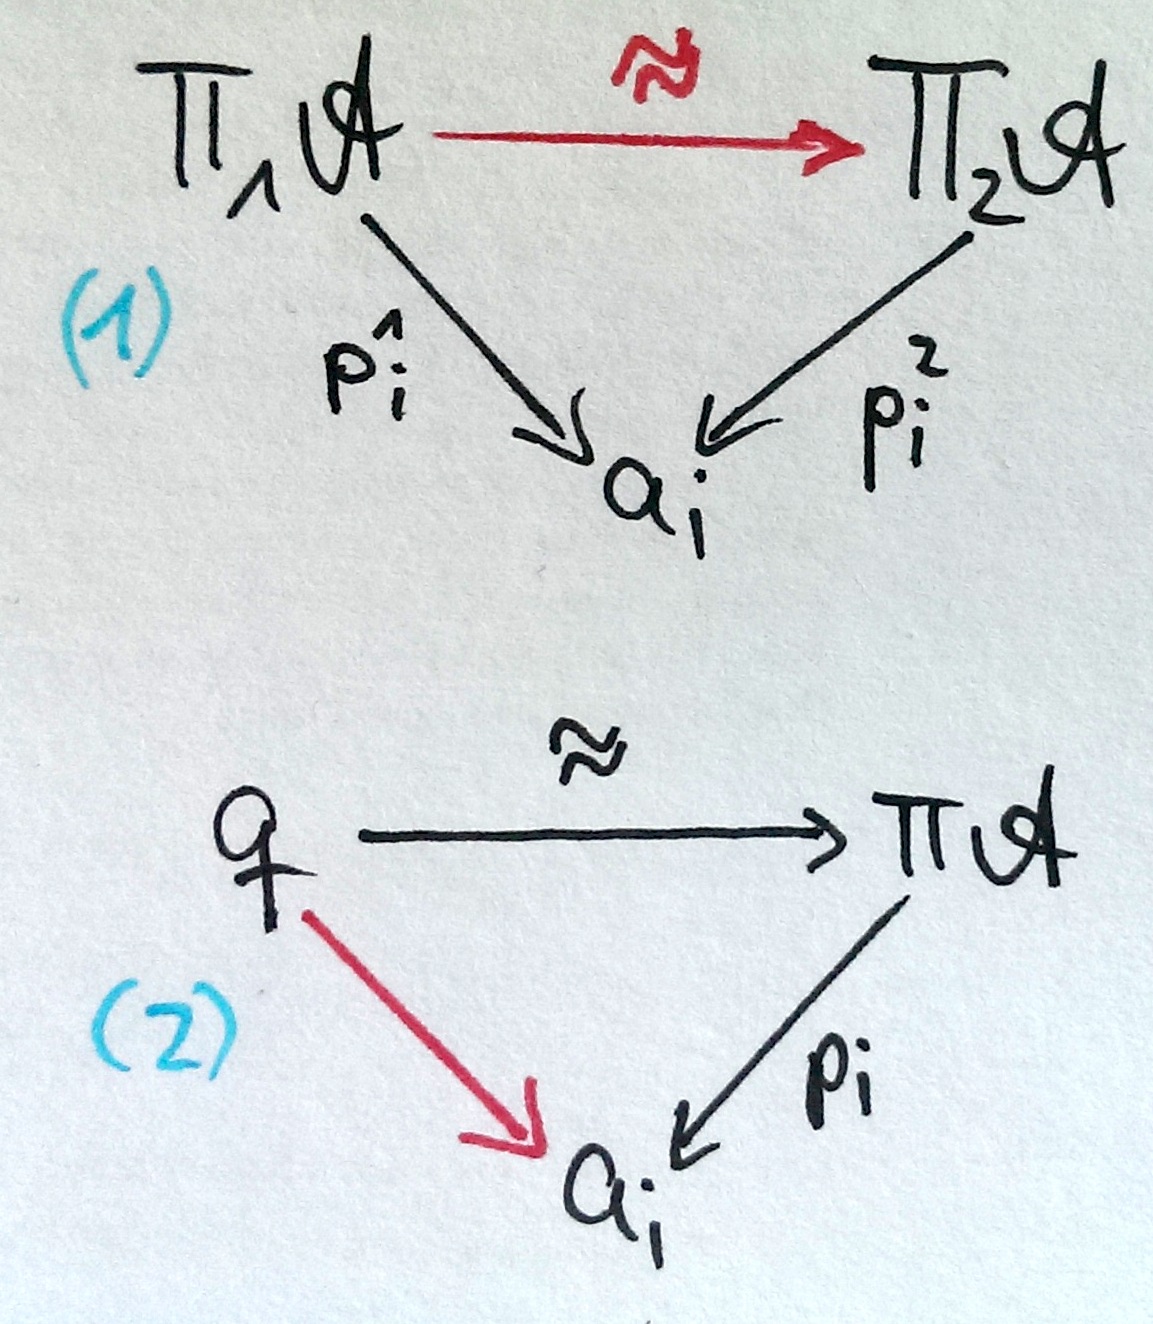 ≈
Π₁𝒜 Π₂𝒜
(1)
pᵢ¹ pᵢ²
aᵢ
≈
q Π𝒜
(2)
pᵢ
aᵢ